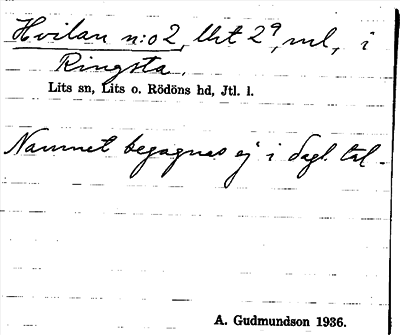 Hvilan n:o 2, lht 2⁹, ml, i
Ringsta.
Lits sn, Lits o. Rödöns hd, Jtl. l.
Namnet begagnas ej i dagl. tal.
A. Gudmundson 1936.